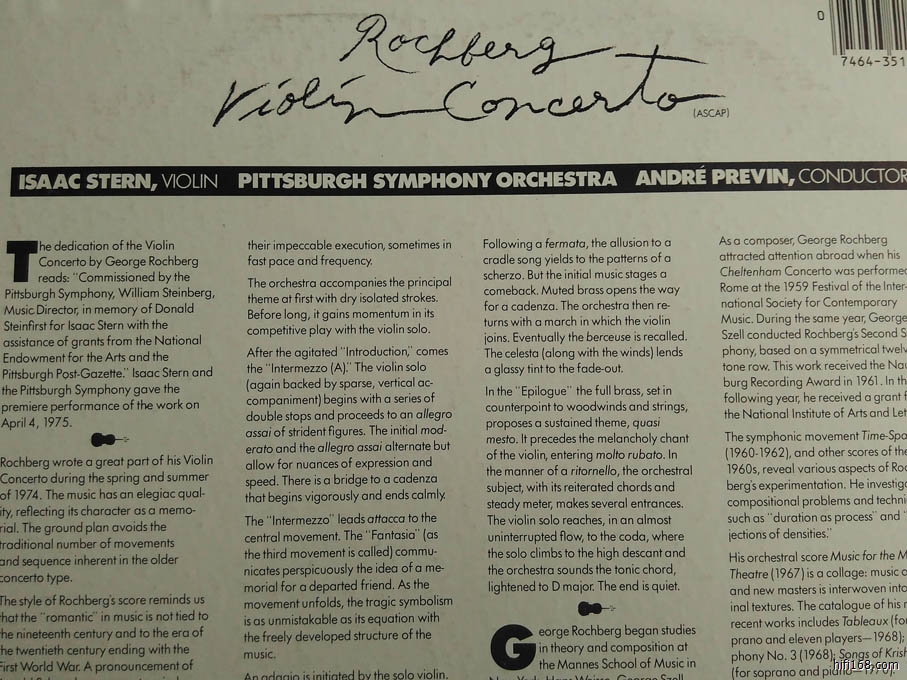 0
7464-351
Rochberg
Violin Concerto
(ASCAP)
ISAAC STERN, VIOLIN PITTSBURGH SYMPHONY ORCHESTRA ANDRÉ PREVIN, CONDUCTOR
The dedication of the Violin
Concerto by George Rochberg
reads: "Commissioned by the
Pittsburgh Symphony, William Steinberg,
Music Director, in memory of Donald
Steinfirst for Isaac Stern with the
assistance of grants from the National
Endowment for the Arts and the
Pittsburgh Post-Gazette." Isaac Stern and
the Pittsburgh Symphony gave the
premiere performance of the work on
April 4, 1975.
Rochberg wrote a great part of his Violin
Concerto during the spring and summer
of 1974. The music has an elegiac qual-
ity, reflecting its character as a memo-
rial. The ground plan avoids the
traditional number of movements
and sequence inherent in the older
concerto type.
The style of Rochberg's score reminds us
that the "romantic" in music is not tied to
the nineteenth century and to the era of
the twentieth century ending with the
First World War. A pronouncement of
their impeccable execution, sometimes in
fast pace and frequency.
The orchestra accompanies the principal
theme at first with dry isolated strokes.
Before long, it gains momentum in its
competitive play with the violin solo.
After the agitated "Introduction," comes
the "Intermezzo (A)." The violin solo
(again backed by sparse, vertical ac-
companiment) begins with a series of
double stops and proceeds to an allegro
assai of strident figures. The initial mod-
erato and the allegro assai alternate but
allow for nuances of expression and
speed. There is a bridge to a cadenza
that begins vigorously and ends calmly.
The "Intermezzo" leads attacca to the
central movement. The "Fantasia" (as
the third movement is called) commu-
nicates perspicuously the idea of a me-
morial for a departed friend. As the
movement unfolds, the tragic symbolism
is as unmistakable as its equation with
the freely developed structure of the
music.
An adagio is initiated by the solo violin.
Following a fermata, the allusion to a
cradle song yields to the patterns of a
scherzo. But the initial music stages a
comeback. Muted brass opens the way
for a cadenza. The orchestra then re-
turns with a march in which the violin
joins. Eventually the berceuse is recalled.
The celesta (along with the winds) lends
a glassy tint to the fade-out.
In the "Epilogue" the full brass, set in
counterpoint to woodwinds and strings,
proposes a sustained theme, quasi
mesto. It precedes the melancholy chant
of the violin, entering molto rubato. In
the manner of a ritornello, the orchestral
subject, with its reiterated chords and
steady meter, makes several entrances.
The violin solo reaches, in an almost
uninterrupted flow, to the coda, where
the solo climbs to the high descant and
the orchestra sounds the tonic chord,
lightened to D major. The end is quiet.
George Rochberg began studies
in theory and composition at
the Mannes School of Music in
As a composer, George Rochberg
attracted attention abroad when his
Cheltenham Concerto was performed
Rome at the 1959 Festival of the Inter-
national Society for Contemporary
Music. During the same year, George
Szell conducted Rochberg's Second S
phony, based on a symmetrical twelv
tone row. This work received the Nau
burg Recording Award in 1961. In th
following year, he received a grant f
the National Institute of Arts and Let
The symphonic movement Time-Spa
(1960-1962), and other scores of the
1960s, reveal various aspects of Roc
berg's experimentation. He investiga
compositional problems and techni
such as "duration as process" and "
jections of densities."
His orchestral score Music for the M
Theatre (1967) is a collage: music o
and new masters is interwoven into
inal textures. The catalogue of his r
recent works includes Tableaux (for
prano and eleven players—1968);
phony No. 3 (1968); Songs of Krish
(for soprano and piano—1970).
hifi168.com